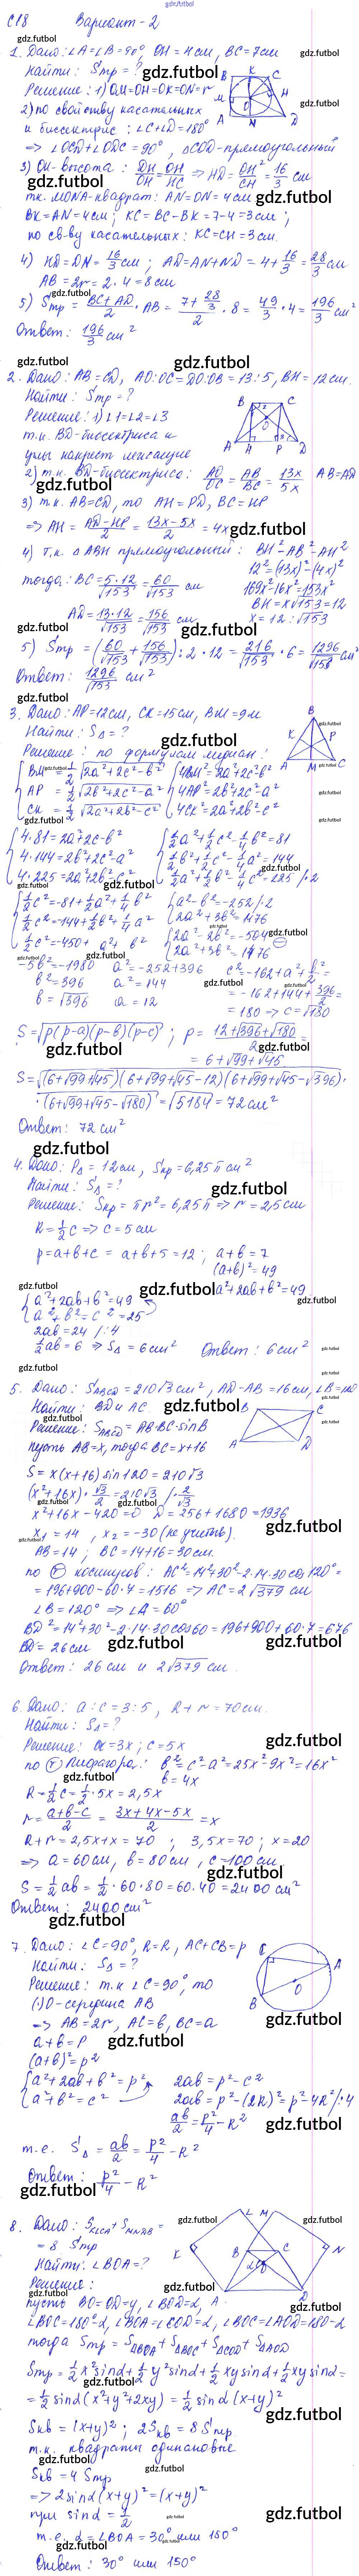 С18 Вариант - 2
1. Дано: ∠A = ∠B = 90°, OH = 4см, BC = 7см
Найти: Sтр = ?
Решение: 1) OM=OH=OK=ON=r
2) по свойству касательных
и биссектрис: ∠C+∠D=180°
=> ∠OCD+∠ODC=90°, △COD-прямоугольный
3) OH-высота: DH/OH = OH/HC => HD = OH²/CH = 16/3 см
т.к. MONA-квадрат: AN=ON=4см
BK=AN=4см; KC=BC-BK=7-4=3см;
по св-ву касательных: KC=CH=3см.
4) HD=DN=16/3 см; AD=AN+ND=4+16/3=28/3 см
AB=2r=2·4=8см
5) Sтр = (BC+AD)/2 · AB = (7+28/3)/2 · 8 = 49/3 · 4 = 196/3 см²
Ответ: 196/3 см²
2. Дано: AB=CD, AO:OC=DO:OB=13:5, BH=12см.
Найти: Sтр=?
Решение: 1) ∠1=∠2=∠3
т.к. BD-биссектриса и
углы накрест лежащие
2) т.к. BD-биссектриса: AO/OC = AB/BC = 13x/5x AB=AD
3) т.к. AB=CD, то AH=PD, BC=HP
=> AH = (AD-HP)/2 = (13x-5x)/2 = 4x
4) т.к. △ABH прямоугольный: BH²=AB²-AH²
12²=(13x)²-(4x)²
тогда: BC = 5·12/√153 = 60/√153 см 169x²-16x²=153x²
BH=x√153=12
AD = 13·12/√153 = 156/√153 см x=12:√153
5) Sтр = (60/√153 + 156/√153):2·12 = 216/√153 · 6 = 1296/√153 см²
Ответ: 1296/√153 см²
3. Дано: AP=12см, CK=15см, BM=9м
Найти: S△=?
Решение: по формулам медиан:
BM = ½√(2a²+2c²-b²) 4BM²=2a²+2c²-b²
AP = ½√(2b²+2c²-a²) 4AP²=2b²+2c²-a²
CK = ½√(2a²+2b²-c²) 4CK²=2a²+2b²-c²
4·81=2a²+2c-b² ½a²+½c²-¼b²=81
4·144=2b²+2c²-a² ½b²+½c²-¼a²=144
4·225=2a²+2b²-c² ½a²+½b²-¼c²=225 /·2
½c²=81-½a²+¼b² a²-b²=-252 /·2
½c²=144-½b²+¼a² 2a²+3b²=1476
½c²=-450+a²+b² 2a²-2b²=-504
2a²+3b²=1476
-5b²=-1980 a²=-252+396 c²=162-a²+b²/2=
b²=396 a²=144 =162-144+396/2=
b=√396 a=12 =180 => c=√180
S=√p(p-a)(p-b)(p-c); p=(12+√396+√180)/2=
=6+√99+√45
S=√(6+√99+√45)(6+√99+√45-12)(6+√99+√45-√396)·
·(6+√99+√45-√180)=√5184=72см²
Ответ: 72 см²
4. Дано: P△=12см, Sкр=6,25π см²
Найти: S△=?
Решение: Sкр=πr²=6,25π => r=2,5см
R=½c => c=5см
p=a+b+c=a+b+5=12; a+b=7
(a+b)²=49
a²+2ab+b²=49
a²+2ab+b²=49
a²+b²=c²=25
2ab=24 /:4
½ab=6 => S△=6см² Ответ: 6см²
5. Дано: SABCD=210√3см², AD-AB=16см, ∠B=120
Найти: BD и AC.
Решение: SABCD=AB·BC·sinB
пусть AB=x, тогда BC=x+16
S=x(x+16)sin120=210√3
(x²+16x)·√3/2=210√3 /·2/√3
x²+16x-420=0 D=256+1680=1936
x₁=14, x₂=-30(не учитыв).
AB=14; BC=14+16=30см
по Т косинусов: AC²=14²+30²-2·14·30cos120°=
=196+900-60·7=1516 => AC=2√379 см
∠B=120° => ∠A=60°
BD²=14²+30²-2·14·30cos60=196+900+60·7=676
BD=26см
Ответ: 26см и 2√379 см.
6. Дано: a:c=3:5, R+r=70см.
Найти: S△=?
Решение: a=3x; c=5x
по Т Пифагора: b²=c²-a²=25x²-9x²=16x²
b=4x
R=½c=½·5x=2,5x
r=(a+b-c)/2=(3x+4x-5x)/2=x
R+r=2,5x+x=70; 3,5x=70; x=20
=> a=60см, b=80см, c=100см
S=½ab=½·60·80=60·40=2400см²
Ответ: 2400см²
7. Дано: ∠C=90°, R=R, AC+CB=p
Найти: S△=?
Решение: т.к ∠C=90°, то
(·)O-середина AB
=> AB=2r, AC=b, BC=a
a+b=P
(a+b)²=p²
a²+2ab+b²=p² 2ab=p²-c²
a²+b²=c² 2ab=p²-(2R)²=p²-4R² /:4
ab/2=p²/4-R²
т.е. S△=ab/2=p²/4-R²
Ответ: p²/4-R²
8. Дано: SKLCA+SMNDB=
=8 Sтр
Найти: ∠BOA=?
Решение:
пусть BO=OD=y, ∠BOD=α,
∠BOC=180°-α, ∠BOA=∠COD=α, ∠BOC=∠AOD=180-α
тогда Sтр=S△BOA+S△BOC+S△COD+S△AOD
Sтр=½x²sinα+½y²sinα+½xysinα+½xysinα=
=½sinα(x²+y²+2xy)=½sinα(x+y)²
Sкв=(x+y)²; 2Sкв=8Sтр
т.к. квадраты одинаковые
Sкв=4Sтр
=> 2sinα(x+y)²=(x+y)²
при sinα=½
т.е. α=∠BOA=30° или 150°
Ответ: 30° или 150°
gdz.futbol